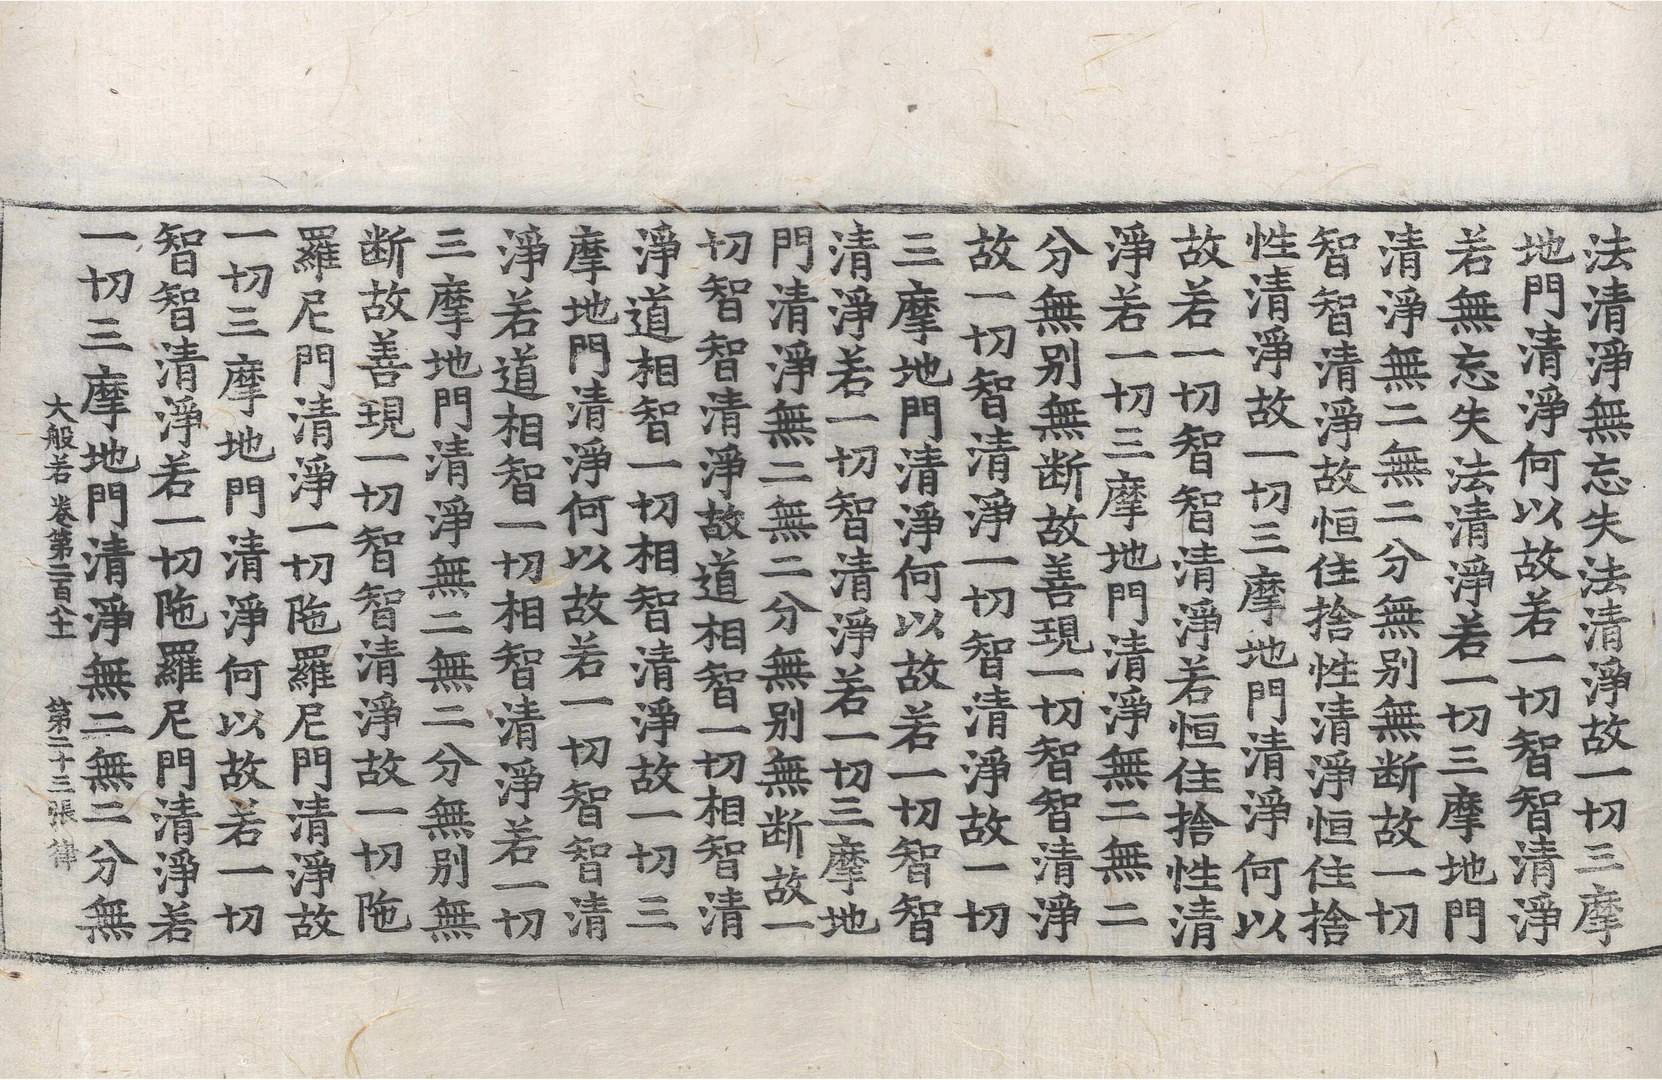 法清淨無忘失法清淨故一切三摩
地門清淨何以故若一切智智清淨
若無忘失法清淨若一切三摩地門
清淨無二無二分無别無断故一切
智智清淨故恒住捨性清淨恒住捨
性清淨故一切三摩地門清淨何以
故若一切智智清淨若恒住捨性清
淨若一切三摩地門清淨無二無二
分無别無断故善現一切智智清淨
故一切智清淨一切智清淨故一切
三摩地門清淨何以故若一切智智
清淨若一切智清淨若一切三摩地
門清淨無二無二分無别無断故一
切智智清淨故道相智一切相智清
淨道相智一切相智清淨故一切三
摩地門清淨何以故若一切智智清
淨若道相智一切相智清淨若一切
三摩地門清淨無二無二分無别無
断故善現一切智智清淨故一切陁
羅尼門清淨一切陁羅尼門清淨故
一切三摩地門清淨何以故若一切
智智清淨若一切陁羅尼門清淨若
一切三摩地門清淨無二無二分無
大般若卷第二百八十一 第二十三張 律